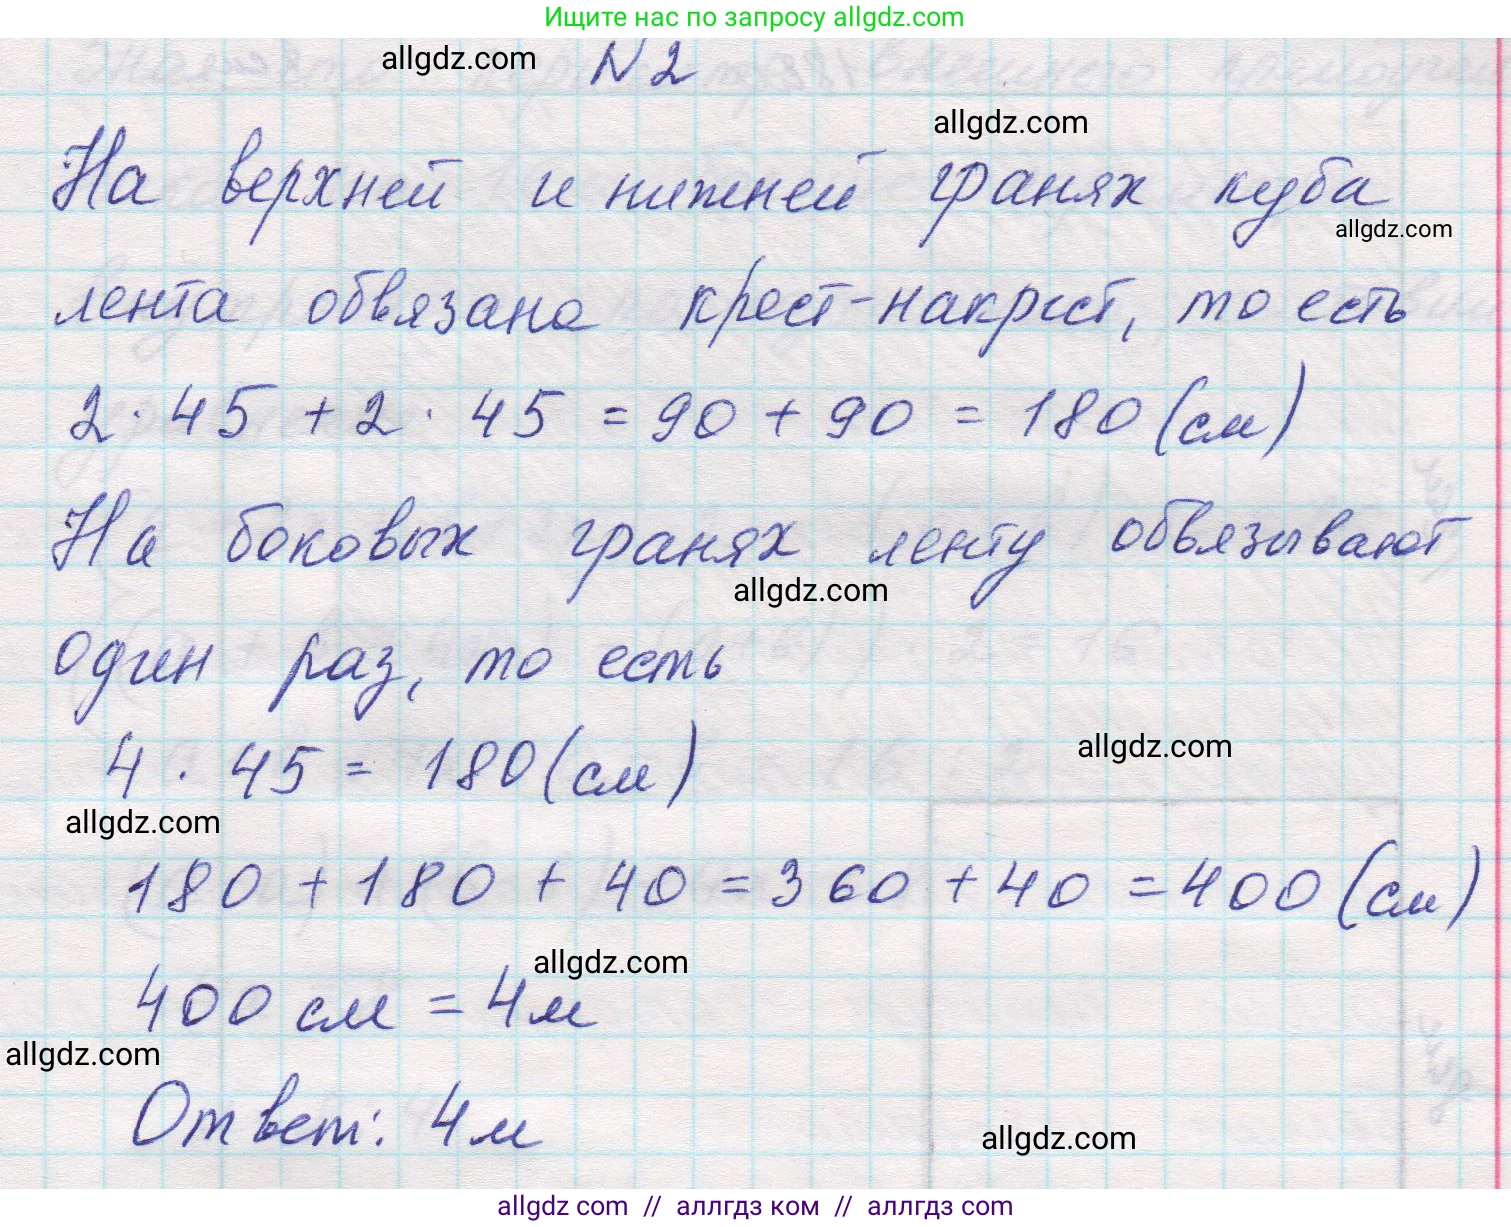 Ищите нас по запросу allgdz.com
allgdz.com
N 2
allgdz.com
На верхней и нижней гранях куба
allgdz.com
лента обвязана крест-накрест, то есть
2 · 45 + 2 · 45 = 90 + 90 = 180 (см)
На боковых гранях ленту обвязывают
allgdz.com
один раз, то есть
4 · 45 = 180 (см)
allgdz.com
allgdz.com
180 + 180 + 40 = 360 + 40 = 400 (см)
allgdz.com
400 см = 4м
allgdz.com
Ответ: 4м
allgdz.com
allgdz com // аллгдз ком // аллгдз com